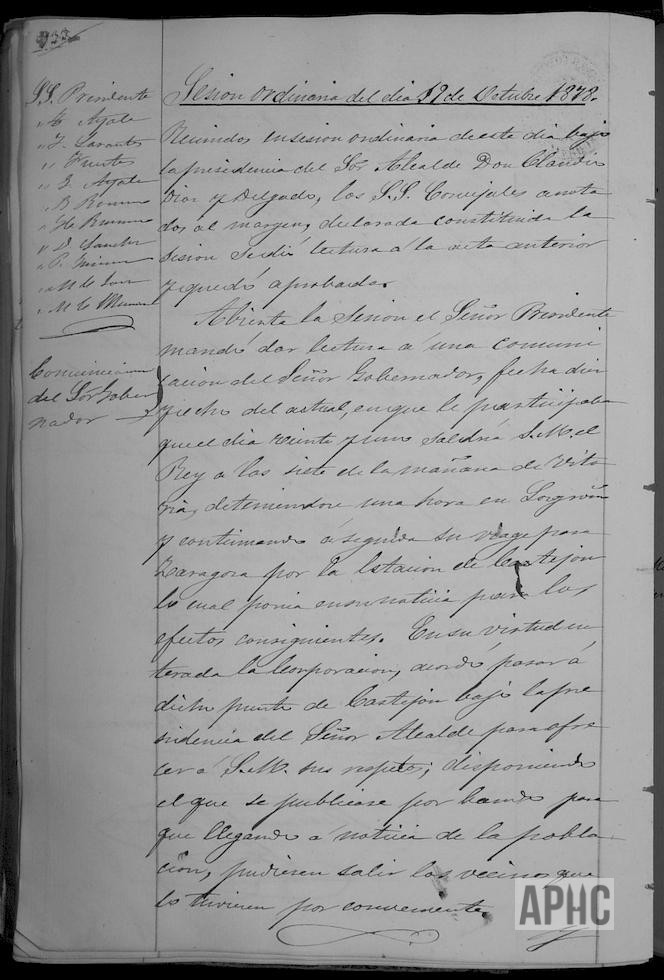 S.S. Presidente
" Ayala
" Fuertes
" Ayala
Comunicacion
del Sor Gober
nador
Sesion ordinaria del dia 19 de Octubre 1878.
Reunidos en sesion ordinaria de este dia bajo
la presidencia del Sor Alcalde Don Claudio
Dior y Delgado, los S.S. Concejales anota
dos al margen, declarada constituida la
sesion se dió lectura á la acta anterior
y quedó aprobada.
Abierta la Sesion el Señor Presidente
mandó dar lectura á una comuni
cacion del Señor Gobernador, fecha diez
y ocho del actual, en que le participaba
que el dia veinte y uno saldria S.M. el
Rey a las siete de la mañana de Vito
ria, deteniendose una hora en Logroño
y continuando á seguida su viage para
Zaragoza por la Estacion de Castejon
lo cual ponia en su noticia para los
efectos consiguientes. En su virtud en
terada la Corporacion, acordó pasar á
dicho punto de Castejon bajo la pre
sidencia del Señor Alcalde para ofre
cer á S.M. sus respetos; disponiendo
el que se publicase por bando para
que llegando á noticia de la pobla
cion, pudiesen salir los vecinos que
lo tuviesen por conveniente.
APHC